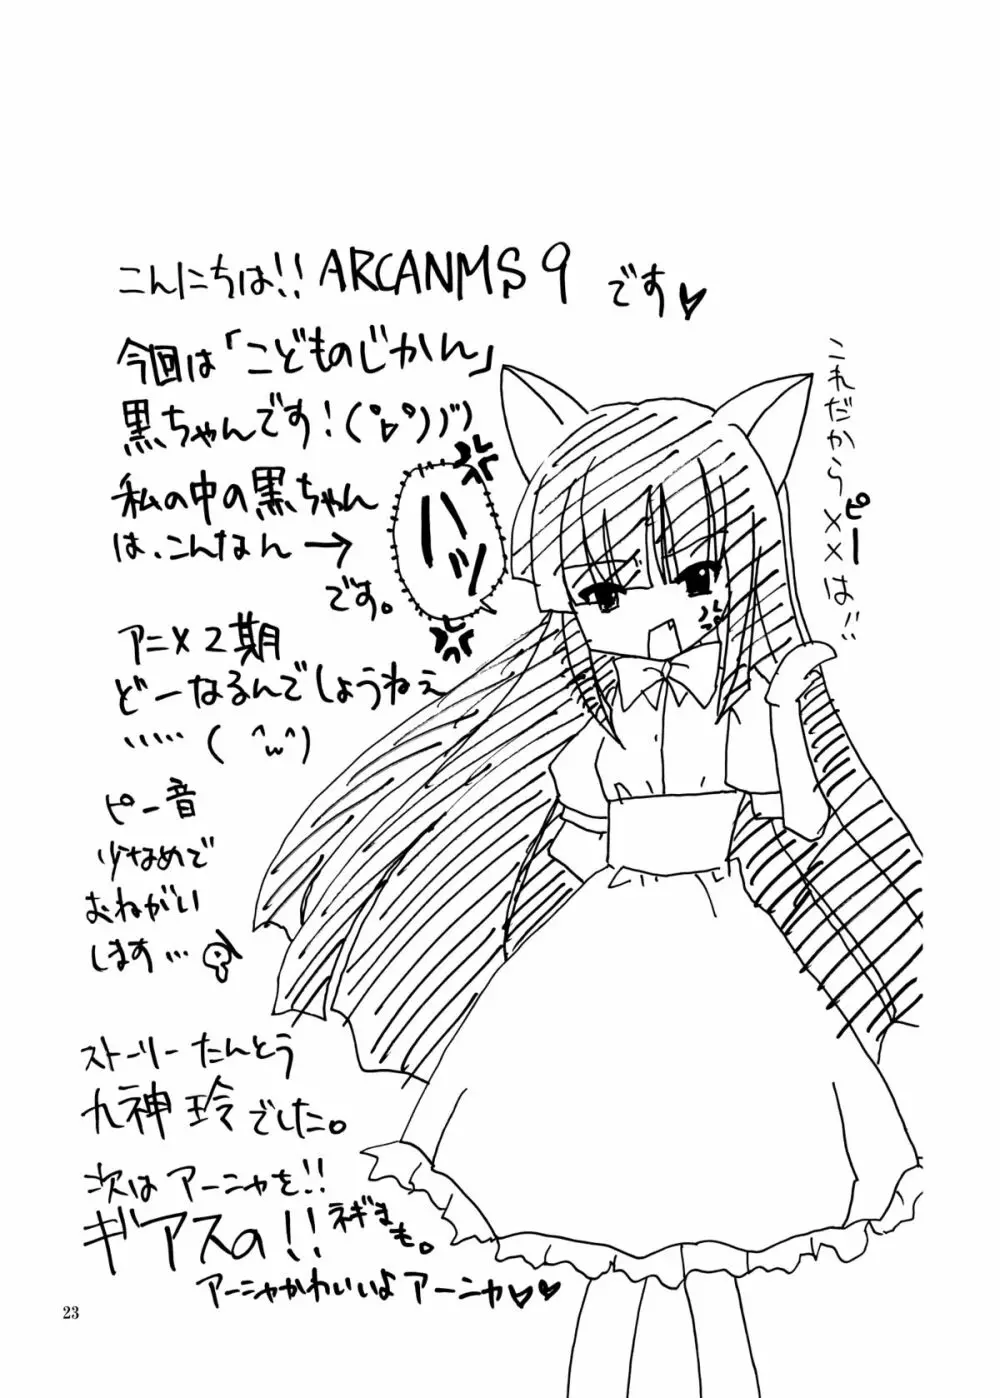 こんにちは!! ARCANMS 9 です♥
今回は「こどものじかん」
黒ちゃんです!(°▽°)ﾉﾞ)
私の中の黒ちゃん
は、こんなん→
です。
アニメ2期
どーなるんでしょうねぇ
……( ^ω^)
ピー音
少なめで
おねがい
します…
ストーリーたんとう
九神 玲でした。
次は アーニャを!!
ギアスの!! ネギまも。
アーニャかわいいよ アーニャ♥♥
ハッ
これだから××は!!
ピー
23